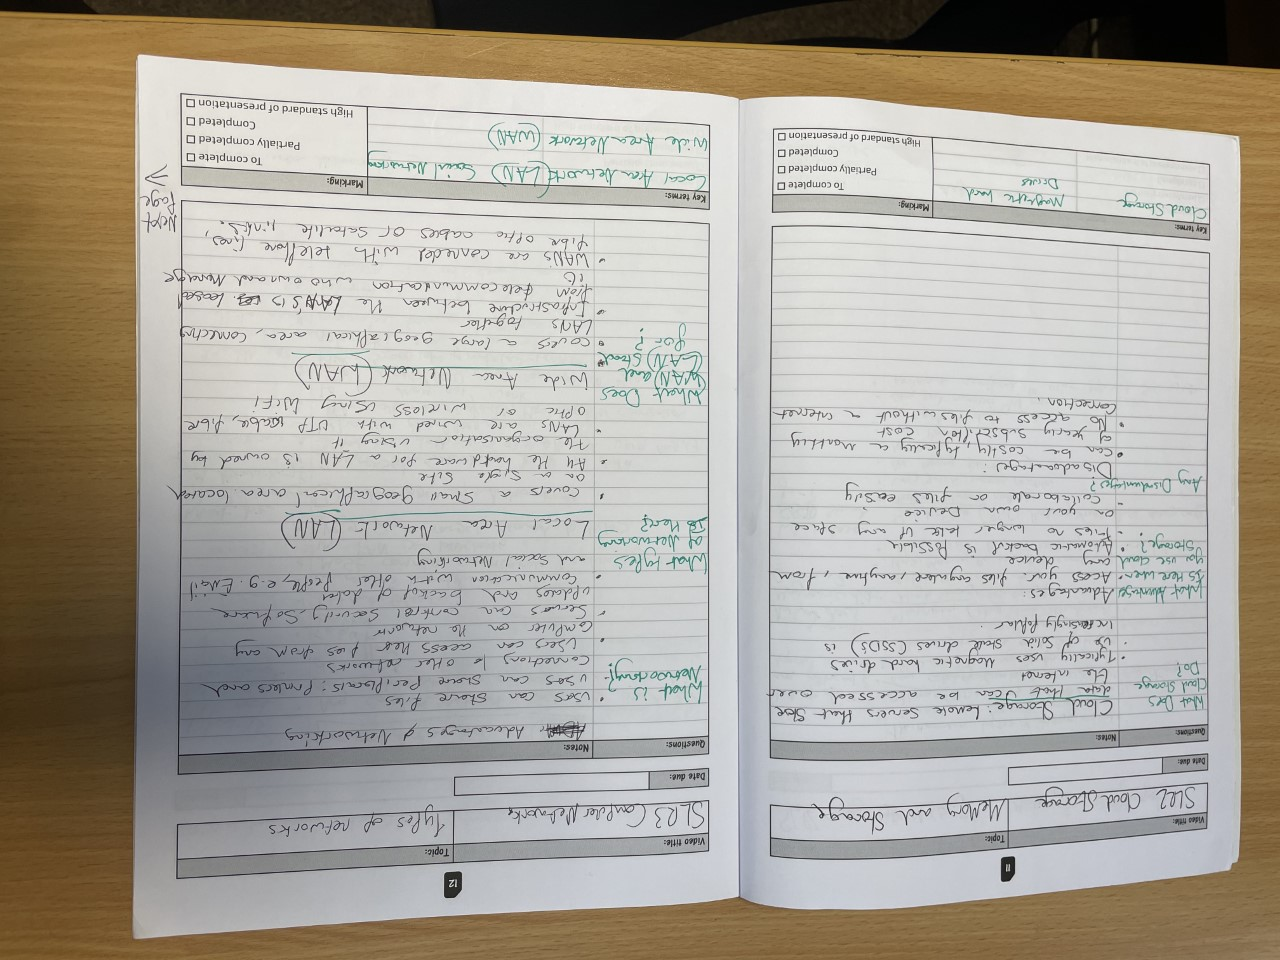 11
Video title:
Topic:
SLR2 Cloud Storage
Memory and Storage
Date due:
Questions:
Notes:
What Does
Cloud Storage
Do?
Cloud Storage: Remote Servers that store
data that can be accessed over
the internet
• Typically uses Magnetic hard drives
• Use of Solid State drives (SSD's) is
increasingly popular.
What Advantage
Is Here when
you use cloud
Storage?
Advantages:
• Acess your files anywhere, anytime, from
any device
• Automatic backup is Possible
- Files no longer take up any space
on your own Device
- Collaborate on files easily
Any Disadvantages?
Disadvantages:
• Can be costly, typically a monthly
or yearly subscription cost
• No access to files without a internet
Connection.
Key terms:
Marking:
Cloud Storage
Magnetic hard
Drives
To complete
Partially completed
Completed
High standard of presentation
12
Video title:
Topic:
SLR3 Computer Networks
Types of networks
Date due:
Questions:
Notes:
Advantages of Networking
What is
Networking?
• Users can share files
Users can share Periphials: Printers and
Connections to other networks
• Users can access their files from any
Computer on the network
• Servers can control Security, Software
updates and backup of data
• Communication with other People, e.g. Email
and Social Networking
What types
of Networking
Is there?
Local Area Network (LAN)
• Covers a Small geographical area located
on a Single Site
• All the hardware for a LAN is owned by
the organisation using it
• LANs are wired with UTP cable, fibre
optic or wireless using WiFi
What Does
(WAN) and
(LAN) Stand
for?
Wide Area Network (WAN)
• Covers a large geographical area, connecting
LANs together
• Infrastructure between the LAN's is leased
from telecommunication who own and Manage
it
• WANs are conneded with telephone lines,
fibre optic cables or Satellite links.
Key terms:
Marking:
Local Area Network (LAN)
Social Networking
Wide Area Network (WAN)
To complete
Partially completed
Completed
High standard of presentation
Next
Page